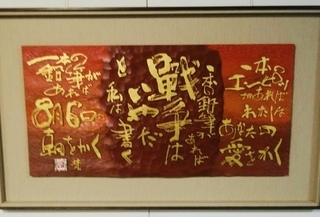 一本の
エンピツがあれば
わたしは
あなたへの
愛をかく
一本の鉛筆が
あれば
戦争は
いやだ
と私は書く
一本の
鉛筆が
あれば
8月6日の
朝とかく